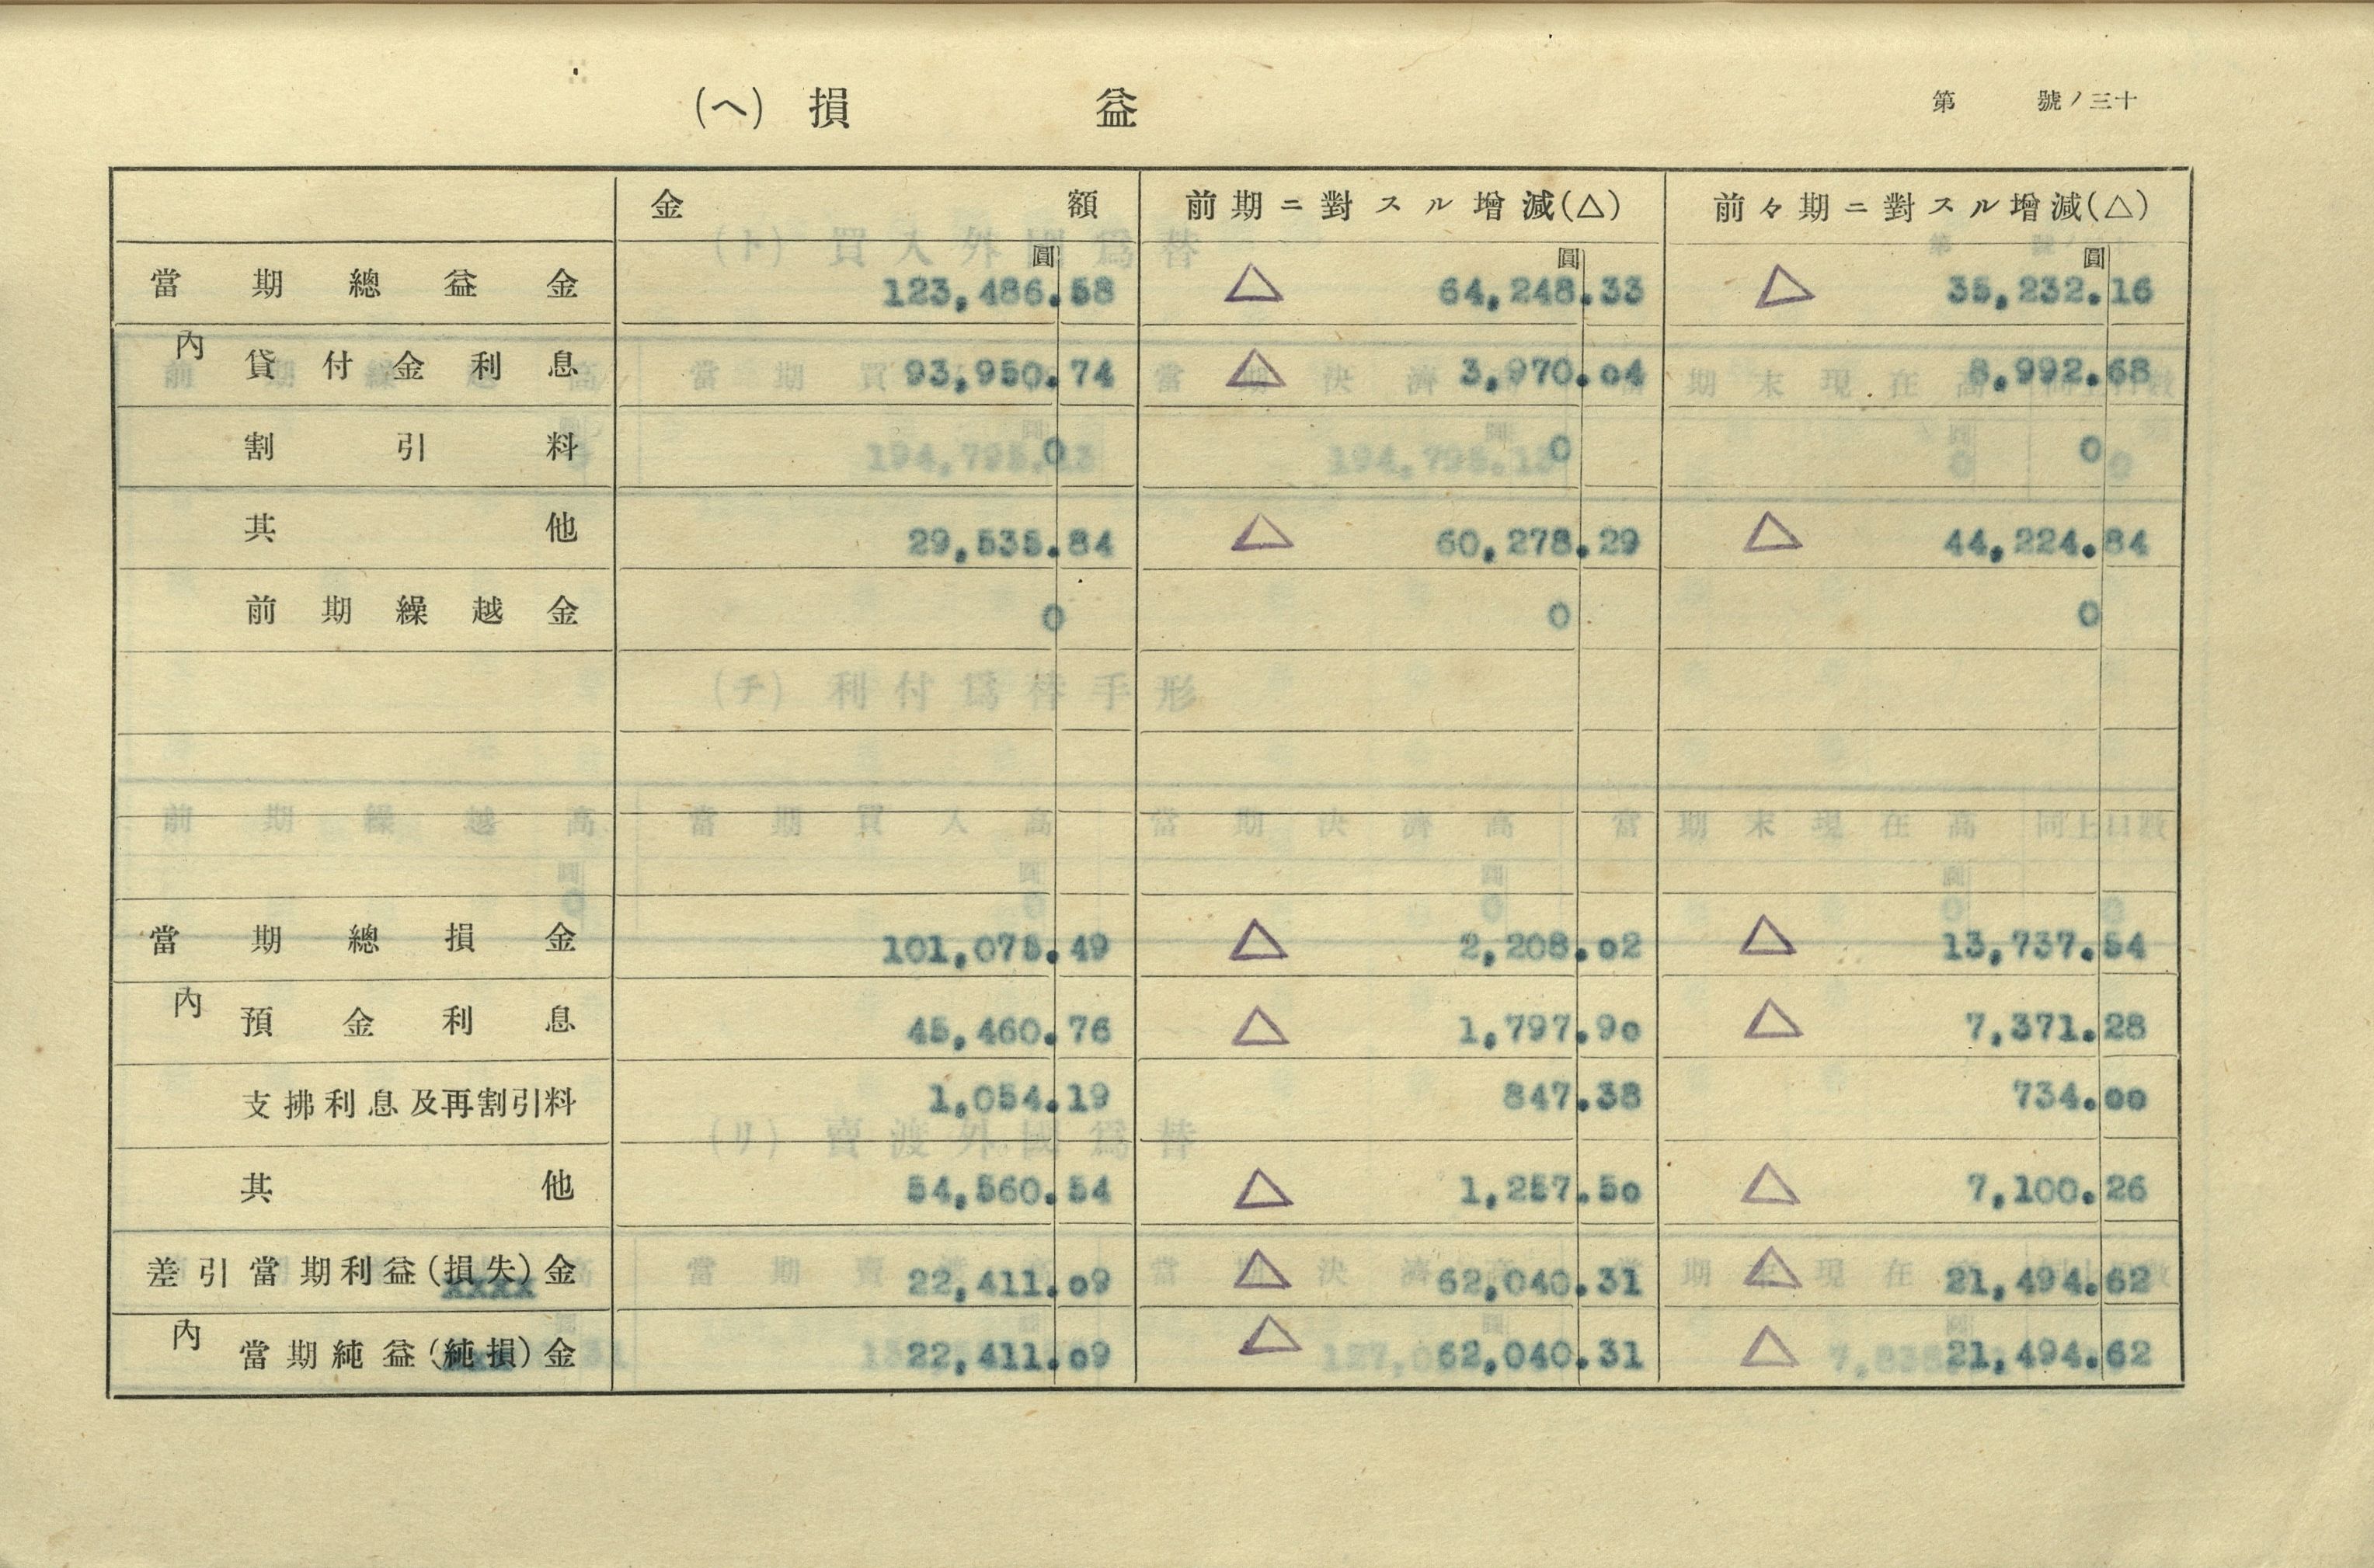 (ヘ) 損 益
第 號ノ三十
金 額 前期ニ對スル增減(△) 前々期ニ對スル增減(△)
圓 圓 圓
當期總益金 123,486.58 △ 64,248.33 △ 35,232.16
內 貸付金利息 93,950.74 △ 3,970.04 8,992.68
割引料 0 0 0
其他 29,535.84 △ 60,278.29 △ 44,224.84
前期繰越金 0 0 0
當期總損金 101,075.49 △ 2,208.02 △ 13,737.54
內 預金利息 45,460.76 △ 1,797.90 △ 7,371.28
支拂利息及再割引料 1,054.19 847.38 734.00
其他 54,560.54 △ 1,257.50 △ 7,100.26
差引當期利益(損失)金 22,411.09 △ 62,040.31 △ 21,494.62
內 當期純益(純損)金 22,411.09 △ 62,040.31 △ 21,494.62